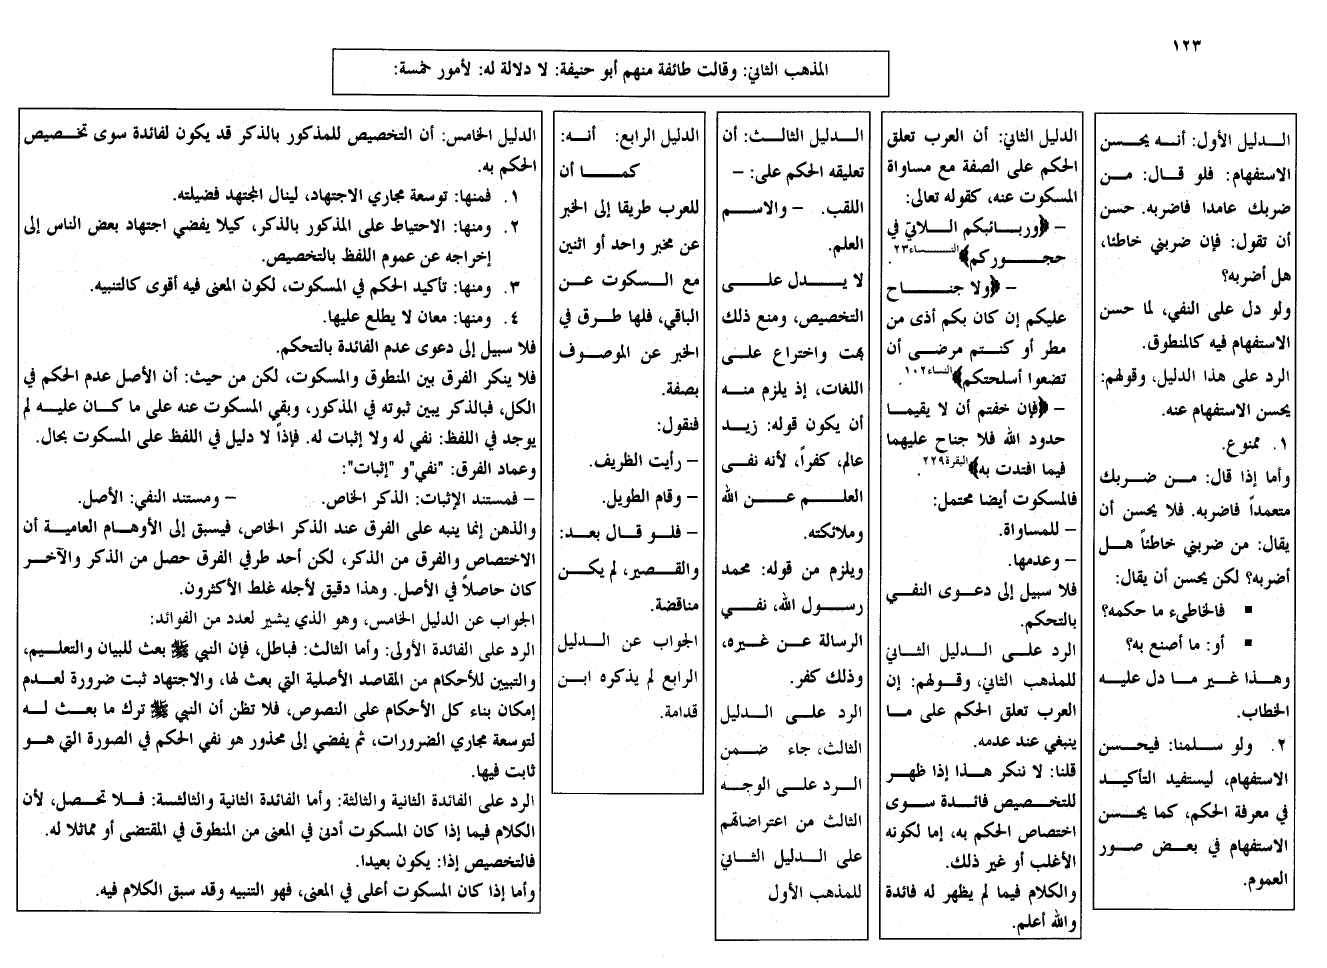 ١٢٣
المذهب الثاني: وقالت طائفة منهم أبو حنيفة: لا دلالة له: لأمور خمسة:
الدليل الأول: أنه يحسن
الاستفهام: فلو قال: من
ضربك عامدا فاضربه. حسن
أن تقول: فإن ضربني خاطئا،
هل أضربه؟
ولو دل على النفي، لما حسن
الاستفهام فيه كالمنطوق.
الرد على هذا الدليل، وقولهم:
يحسن الاستفهام عنه.
١. ممنوع.
وأما إذا قال: من ضربك
متعمداً فاضربه. فلا يحسن أن
يقال: من ضربني خاطئاً هل
أضربه؟ لكن يحسن أن يقال:
▪ فالخاطىء ما حكمه؟
▪ أو: ما أصنع به؟
وهذا غير ما دل عليه
الخطاب.
٢. ولو سلمنا: فيحسن
الاستفهام، ليستفيد التأكيد
في معرفة الحكم، كما يحسن
الاستفهام في بعض صور
العموم.
الدليل الثاني: أن العرب تعلق
الحكم على الصفة مع مساواة
المسكوت عنه، كقوله تعالى:
– ﴿وربائبكم اللاتي في
حجوركم﴾النساء٢٣.
– ﴿ولا جناح
عليكم إن كان بكم أذى من
مطر أو كنتم مرضى أن
تضعوا أسلحتكم﴾النساء١٠٢.
– ﴿فإن خفتم أن لا يقيما
حدود الله فلا جناح عليهما
فيما افتدت به﴾البقرة٢٢٩.
فالمسكوت أيضا محتمل:
– للمساواة.
– وعدمها.
فلا سبيل إلى دعوى النفي
بالتحكم.
الرد على الدليل الثاني
للمذهب الثاني، وقولهم: إن
العرب تعلق الحكم على ما
ينبغي عند عدمه.
قلنا: لا ننكر هذا إذا ظهر
للتخصيص فائدة سوى
اختصاص الحكم به، إما لكونه
الأغلب أو غير ذلك.
والكلام فيما لم يظهر له فائدة
والله أعلم.
الدليل الثالث: أن
تعليقه الحكم على: –
اللقب. – والاسم
العلم.
لا يدل على
التخصيص، ومنع ذلك
بهت واختراع على
اللغات، إذ يلزم منه
أن يكون قوله: زيد
عالم، كفراً، لأنه نفى
العلم عن الله
وملائكته.
ويلزم من قوله: محمد
رسول الله، نفي
الرسالة عن غيره،
وذلك كفر.
الرد على الدليل
الثالث، جاء ضمن
الرد على الوجه
الثالث من اعتراضاتهم
على الدليل الثاني
للمذهب الأول
الدليل الرابع: أنه:
كما أن
للعرب طريقا إلى الخبر
عن مخبر واحد أو اثنين
مع السكوت عن
الباقي، فلها طرق في
الخبر عن الموصوف
بصفة.
فنقول:
– رأيت الظريف.
– وقام الطويل.
– فلو قال بعد:
والقصير، لم يكن
مناقضة.
الجواب عن الدليل
الرابع لم يذكره ابن
قدامة.
الدليل الخامس: أن التخصيص للمذكور بالذكر قد يكون لفائدة سوى تخصيص
الحكم به.
١. فمنها: توسعة مجاري الاجتهاد، لينال المجتهد فضيلته.
٢. ومنها: الاحتياط على المذكور بالذكر، كيلا يفضي اجتهاد بعض الناس إلى
إخراجه عن عموم اللفظ بالتخصيص.
٣. ومنها: تأكيد الحكم في المسكوت، لكون المعنى فيه أقوى كالتنبيه.
٤. ومنها: معان لا يطلع عليها.
فلا سبيل إلى دعوى عدم الفائدة بالتحكم.
فلا ينكر الفرق بين المنطوق والمسكوت، لكن من حيث: أن الأصل عدم الحكم في
الكل، فبالذكر يبين ثبوته في المذكور، وبقي المسكوت عنه على ما كان عليه لم
يوجد في اللفظ: نفي له ولا إثبات له. فإذاً لا دليل في اللفظ على المسكوت بحال.
وعماد الفرق: "نفي"و "إثبات":
– فمستند الإثبات: الذكر الخاص. – ومستند النفي: الأصل.
والذهن إنما ينبه على الفرق عند الذكر الخاص، فيسبق إلى الأوهام العامية أن
الاختصاص والفرق من الذكر، لكن أحد طرفي الفرق حصل من الذكر والآخر
كان حاصلاً في الأصل. وهذا دقيق لأجله غلط الأكثرون.
الجواب عن الدليل الخامس، وهو الذي يشير لعدد من الفوائد:
الرد على الفائدة الأولى: وأما الثالث: فباطل، فإن النبي ﷺ بعث للبيان والتعليم،
والتبيين للأحكام من المقاصد الأصلية التي بعث لها، والاجتهاد ثبت ضرورة لعدم
إمكان بناء كل الأحكام على النصوص، فلا تظن أن النبي ﷺ ترك ما بعث له
لتوسعة مجاري الضرورات، ثم يفضي إلى محذور هو نفي الحكم في الصورة التي هو
ثابت فيها.
الرد على الفائدة الثانية والثالثة: وأما الفائدة الثانية والثالثة: فلا تحصل، لأن
الكلام فيما إذا كان المسكوت أدنى في المعنى من المنطوق في المقتضى أو مماثلا له.
فالتخصيص إذا: يكون بعيدا.
وأما إذا كان المسكوت أعلى في المعنى، فهو التنبيه وقد سبق الكلام فيه.